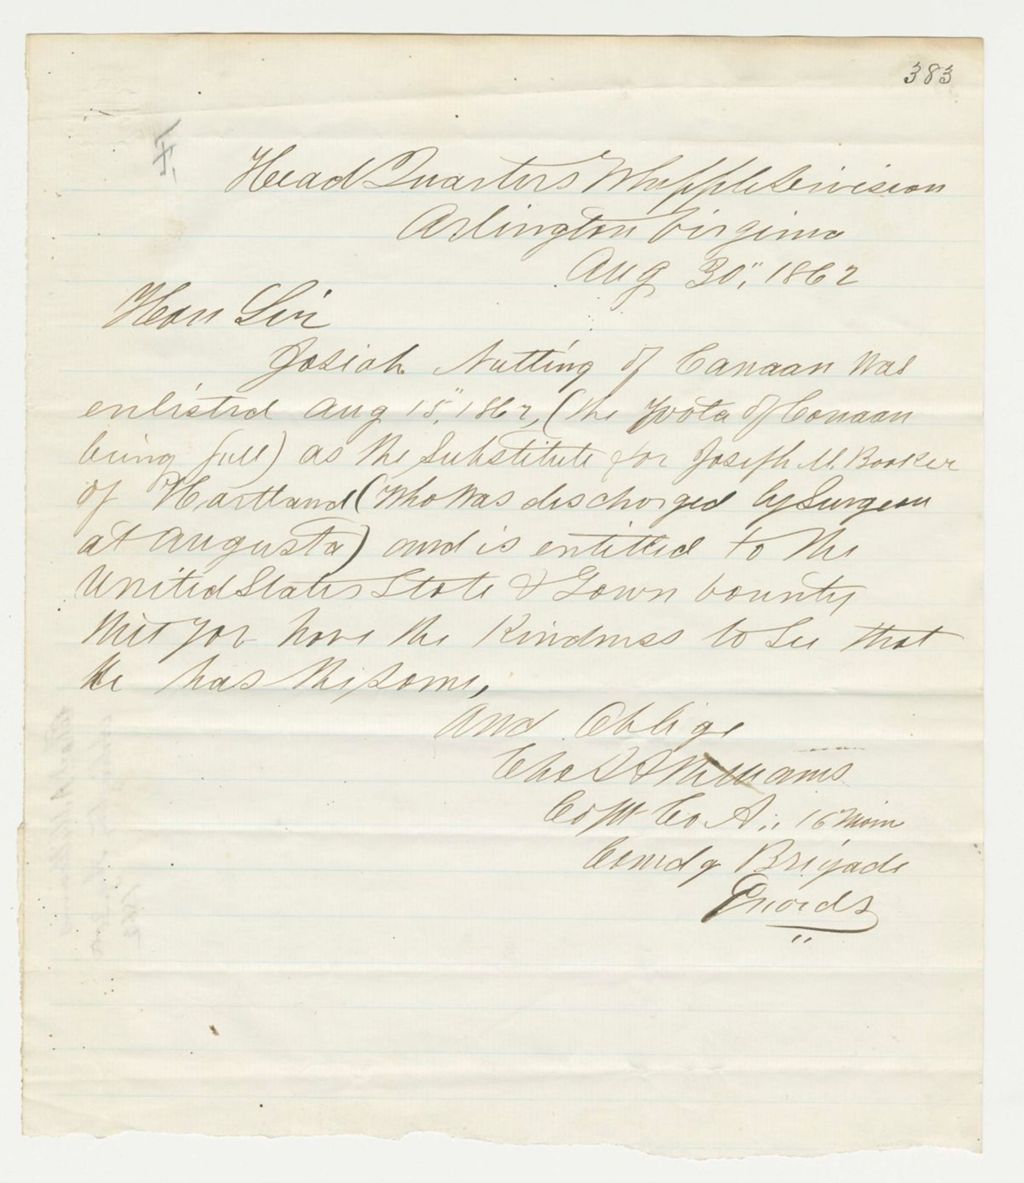 383
F,
Head Quarters Whipple Division
Arlington Virginia
Aug 30", 1862
Hon Sir
Josiah Nutting of Canaan Was
enlisted Aug 15", 1862, (the quota of Canaan
being full) as the Substitute for Joseph M. Booker
of Hartland (Who Was discharged by Surgeon
at Augusta) and is entitled to the
United States State & Town bounty
Will you have the Kindness to See that
He has the same,
And Oblige
Chas Williams
Capt Co A,, 16 Main
Comdg Brigade
Guards